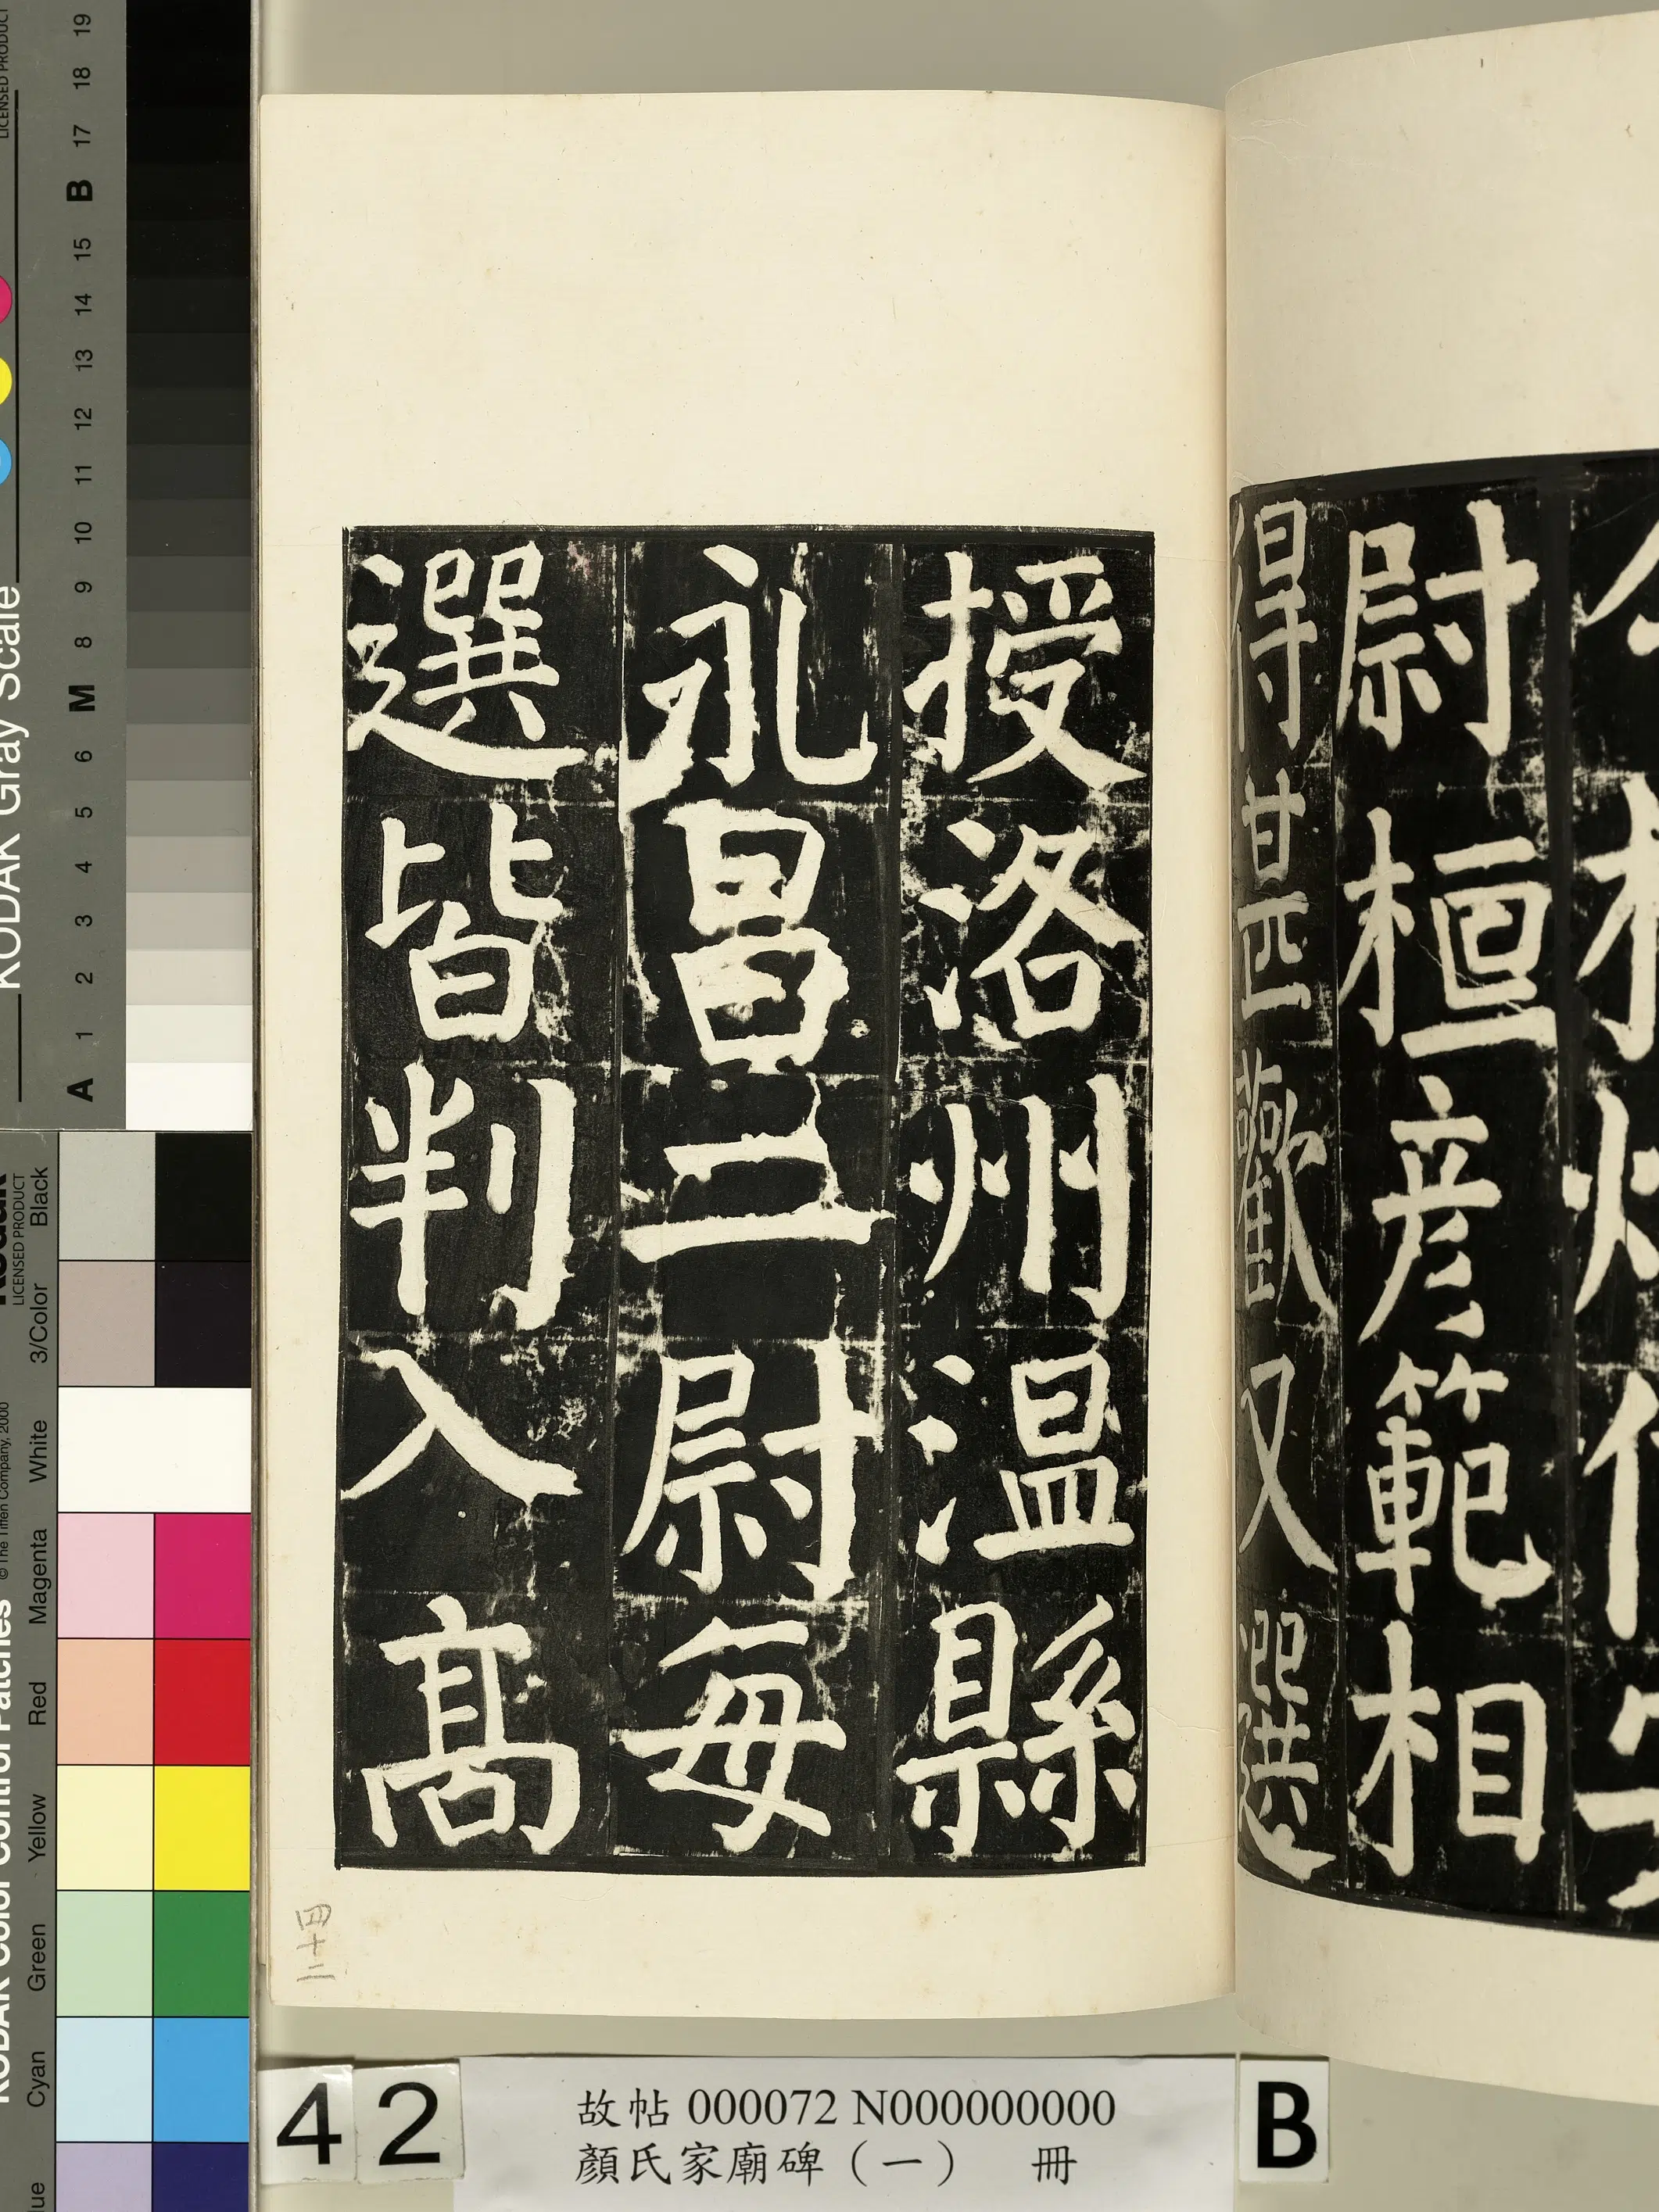 尉桓彦範相
得甚歡又選
授洛州温縣
永昌二尉每
選皆判入髙
四十二
42
故帖 000072 N000000000
顏氏家廟碑（一） 冊
B
KODAK Gray Scale
LICENSED PRODUCT
A 1 2 3 4 5 6 M 8 9 10 11 12 13 14 15 B 17 18 19
KODAK Color Control Patches
© The Tiffen Company, 2000
Kodak
LICENSED PRODUCT
Cyan Green Yellow Red Magenta White 3/Color Black